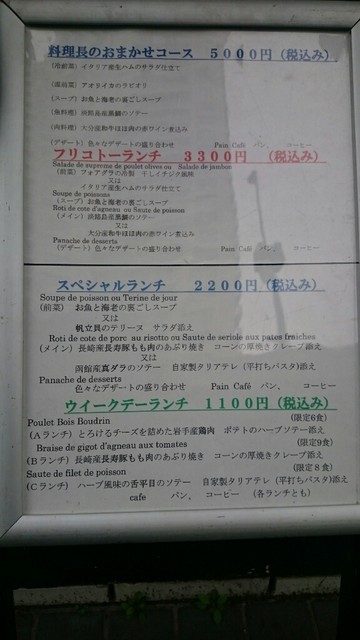 料理長のおまかせコース 5000円(税込み)
(冷前菜) イタリア産生ハムのサラダ仕立て
(温前菜) アオリイカのラビオリ
(スープ) お魚と海老の裏ごしスープ
(魚料理) 淡路島産黒鯛のソテー
(肉料理) 大分産和牛ほほ肉の赤ワイン煮込み
(デザート) 色々なデザートの盛り合わせ Pain Café パン、 コーヒー
フリコトーランチ 3300円(税込み)
Salade de supreme de poulet olives ou Salade de jambon
(前菜) フォアグラの冷製 干しイチジク風味
又は
イタリア産生ハムのサラダ仕立て
Soupe de poissons
(スープ) お魚と海老の裏ごしスープ
Roti de cote d'agneau ou Saute de poisson
(メイン) 淡路島産黒鯛のソテー
又は
大分産和牛ほほ肉の赤ワイン煮込み
Panache de desserts
(デザート) 色々なデザートの盛り合わせ Pain Café パン、 コーヒー
スペシャルランチ 2200円(税込み)
Soupe de poisson ou Terine de jour
(前菜) お魚と海老の裏ごしスープ
又は
帆立貝のテリーヌ サラダ添え
Roti de cote de porc au risotto ou Saute de seriole aux pates fraiches
(メイン) 長崎産長寿豚もも肉のあぶり焼き コーンの厚焼きクレープ添え
又は
函館産真ダラのソテー 自家製タリアテレ(平打ちパスタ)添え
Panache de desserts
色々なデザートの盛り合わせ Pain Café パン、 コーヒー
ウイークデーランチ 1100円(税込み)
Poulet Bois Boudrin (限定6食)
(Aランチ) とろけるチーズを詰めた岩手産鶏肉 ポテトのハーブソテー添え
Braise de gigot d'agneau aux tomates (限定9食)
(Bランチ) 長崎産長寿豚もも肉のあぶり焼き コーンの厚焼きクレープ添え
Saute de filet de poisson (限定8食)
(Cランチ) ハーブ風味の舌平目のソテー 自家製タリアテレ(平打ちパスタ)添え
cafe パン、 コーヒー (各ランチとも)